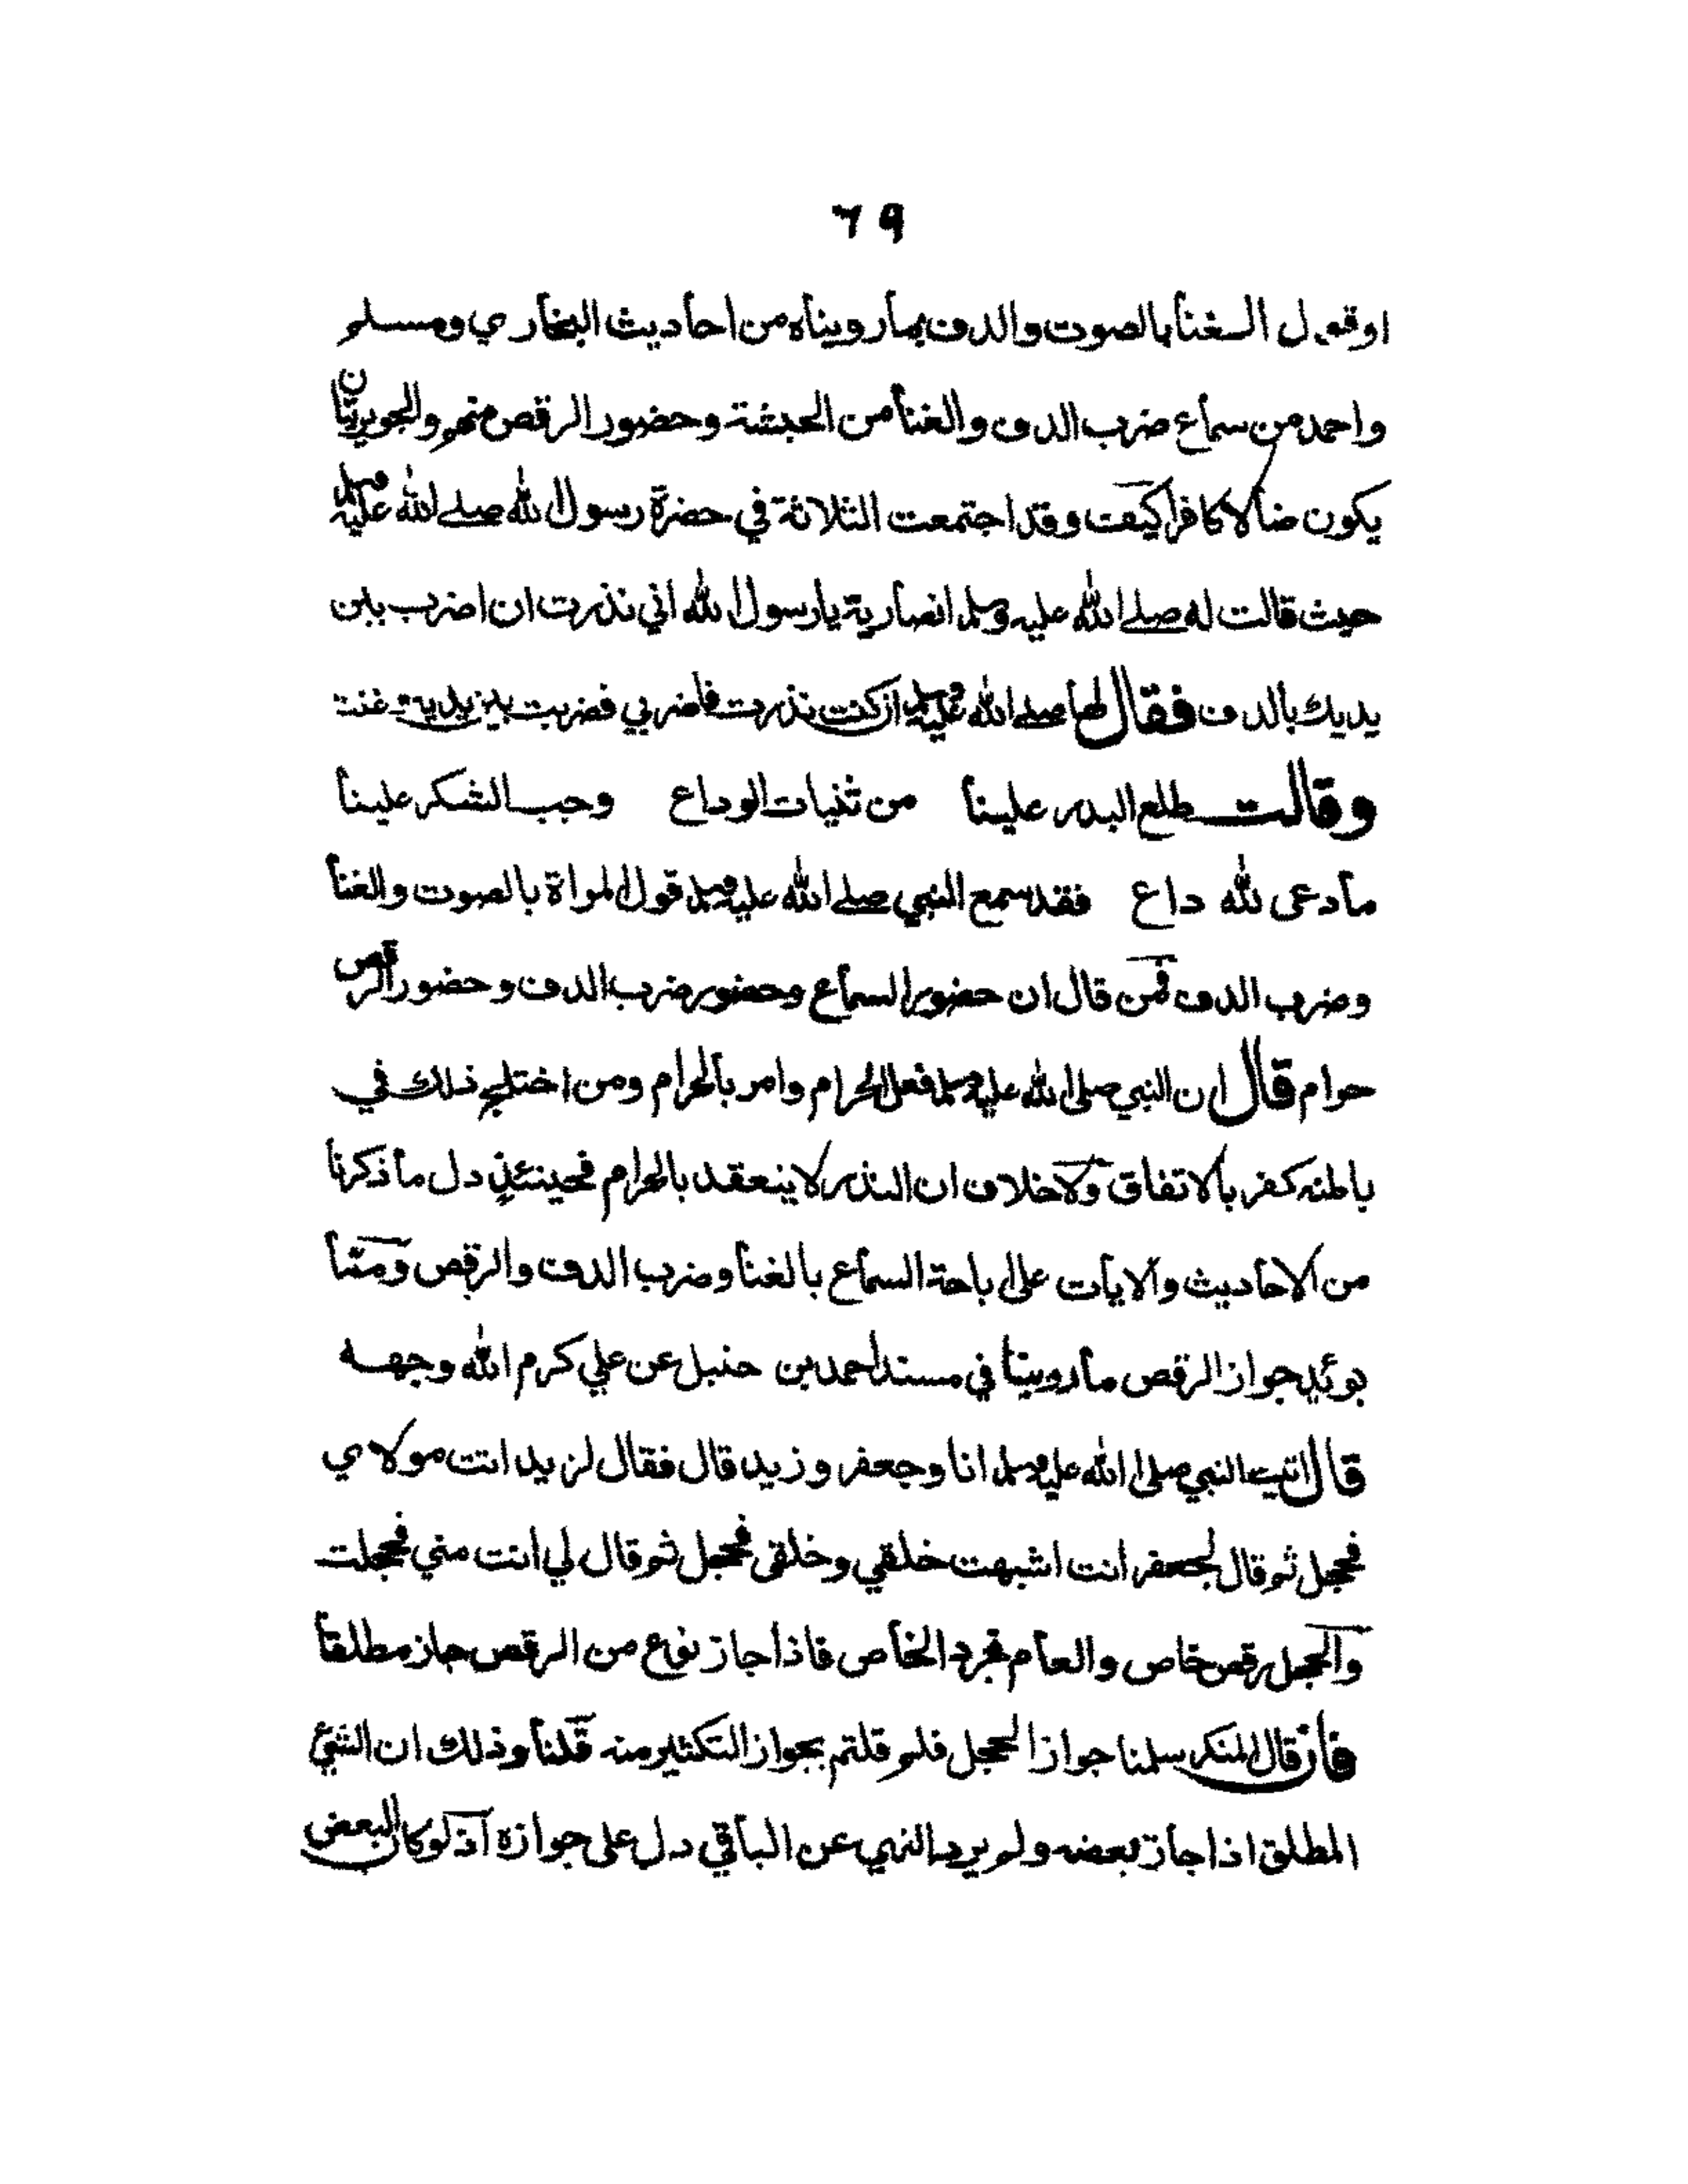 ٦٩
او قول الغنا بالصوت والدف بما رويناه من احاديث البخاري ومسلم
واحمد من سماع ضرب الدف والغنا من الحبشة وحضور الرقص منهم والجويريتان
يكون ضالا كافرا كيف وقد اجتمعت الثلاثة في حضرة رسول الله صلے الله عليه وسلم
حيث قالت له صلے الله عليه وسلم انصارية يا رسول الله اني نذرت ان اضرب بين
يديك بالدف فقال لها صلے الله عليه وسلم ان كنت نذرت فاضربي فضربت بين يديه وغنت
وقالت طلع البدر علينا من ثنيات الوداع وجب الشكر علينا
ما دعى لله داع فقد سمع النبي صلے الله عليه وسلم قول المراة بالصوت والغنا
وضرب الدف فمن قال ان حضور السماع وحضور ضرب الدف وحضور الرقص
حرام قال ان النبي صلى الله عليه وسلم فعل الحرام وامر بالحرام ومن اختلج ذلك في
باطنه كفر بالاتفاق ولا خلاف ان النذر لا ينعقد بالحرام فحينئذ دل ما ذكرنا
من الاحاديث والايات على اباحة السماع بالغنا وضرب الدف والرقص ومما
يوئد جواز الرقص ما روينا في مسند احمد بن حنبل عن علي كرم الله وجهه
قال اتيت النبي صلى الله عليه وسلم انا وجعفر وزيد قال فقال لزيد انت مولاي
فحجل ثم قال لجعفر انت اشبهت خلقي وخلقى فحجل ثم قال لي انت مني فحجلت
والحجل رقص خاص والعام فجرد الخاص فاذا جاز نوع من الرقص جاز مطلقا
فان قال المنكر سلمنا جواز الحجل فلم قلتم بجواز التكثير منه قلنا وذلك ان الشئ
المطلق اذا جاز بعضه ولم يرد النهي عن الباقي دل على جوازه اذ لو كان البعض